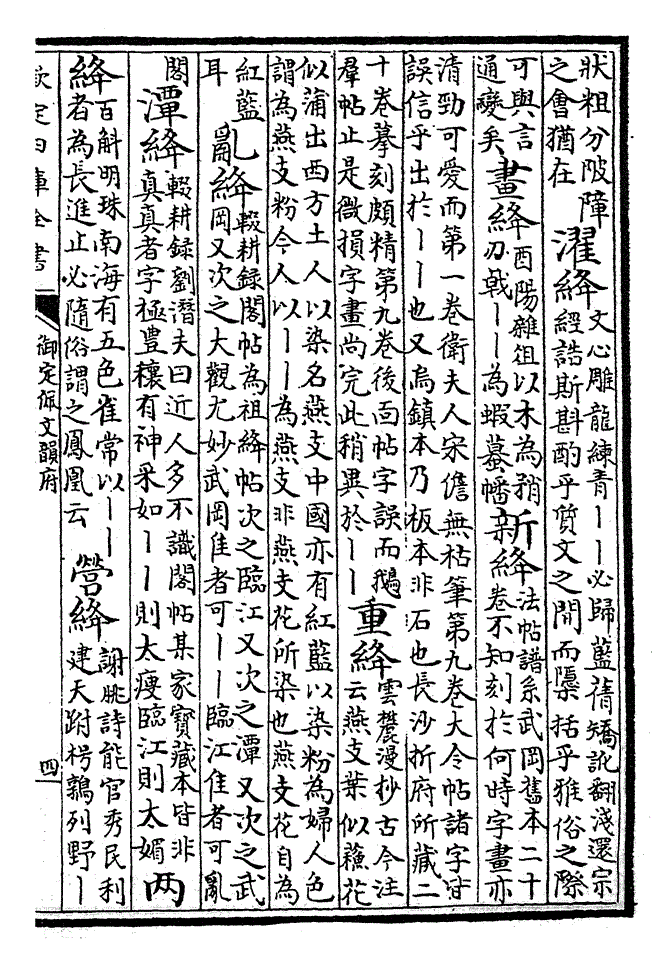 狀粗分陂障
之會猶在
濯絳
文心雕龍練青丨丨必歸藍蒨矯訛翻淺還宗
經誥斯斟酌乎質文之閒而檃括乎雅俗之際
可與言
通變矣
畫絳
酉陽雜俎以木為矟
刃戟丨丨為蝦蟇幡
新絳
法帖譜系武岡舊本二十
卷不知刻於何時字畫亦
清勁可愛而第一卷衛夫人宋儋無枯筆第九卷大令帖諸字皆
誤信乎出於丨丨也又烏鎮本乃板本非石也長沙折府所藏二
十卷摹刻頗精第九卷後面帖字誤而鵝
羣帖止是微損字畫尚完此稍異於丨丨
重絳
雲麓漫抄古今注
云燕支葉似蘓花
似蒲出西方土人以染名燕支中國亦有紅藍以染粉為婦人色
謂為燕支粉今人以丨丨為燕支非燕支花所染也燕支花自為
紅藍
耳
亂絳
輟耕録閣帖為祖絳帖次之臨江又次之潭又次之武
岡又次之大觀尤妙武岡佳者可丨丨臨江佳者可亂
閣
潭絳
輟耕録劉潛夫曰近人多不識閣帖某家寶藏本皆非
真真者字極豊穰有神采如丨丨則太瘦臨江則太媚
两
絳
百斛明珠南海有五色雀常以丨丨
者為長進止必隨俗謂之鳳凰云
營絳
謝脁詩能官秀民利
建天跗枵鶉列野丨
欽定四庫全書
御定佩文韻府
四